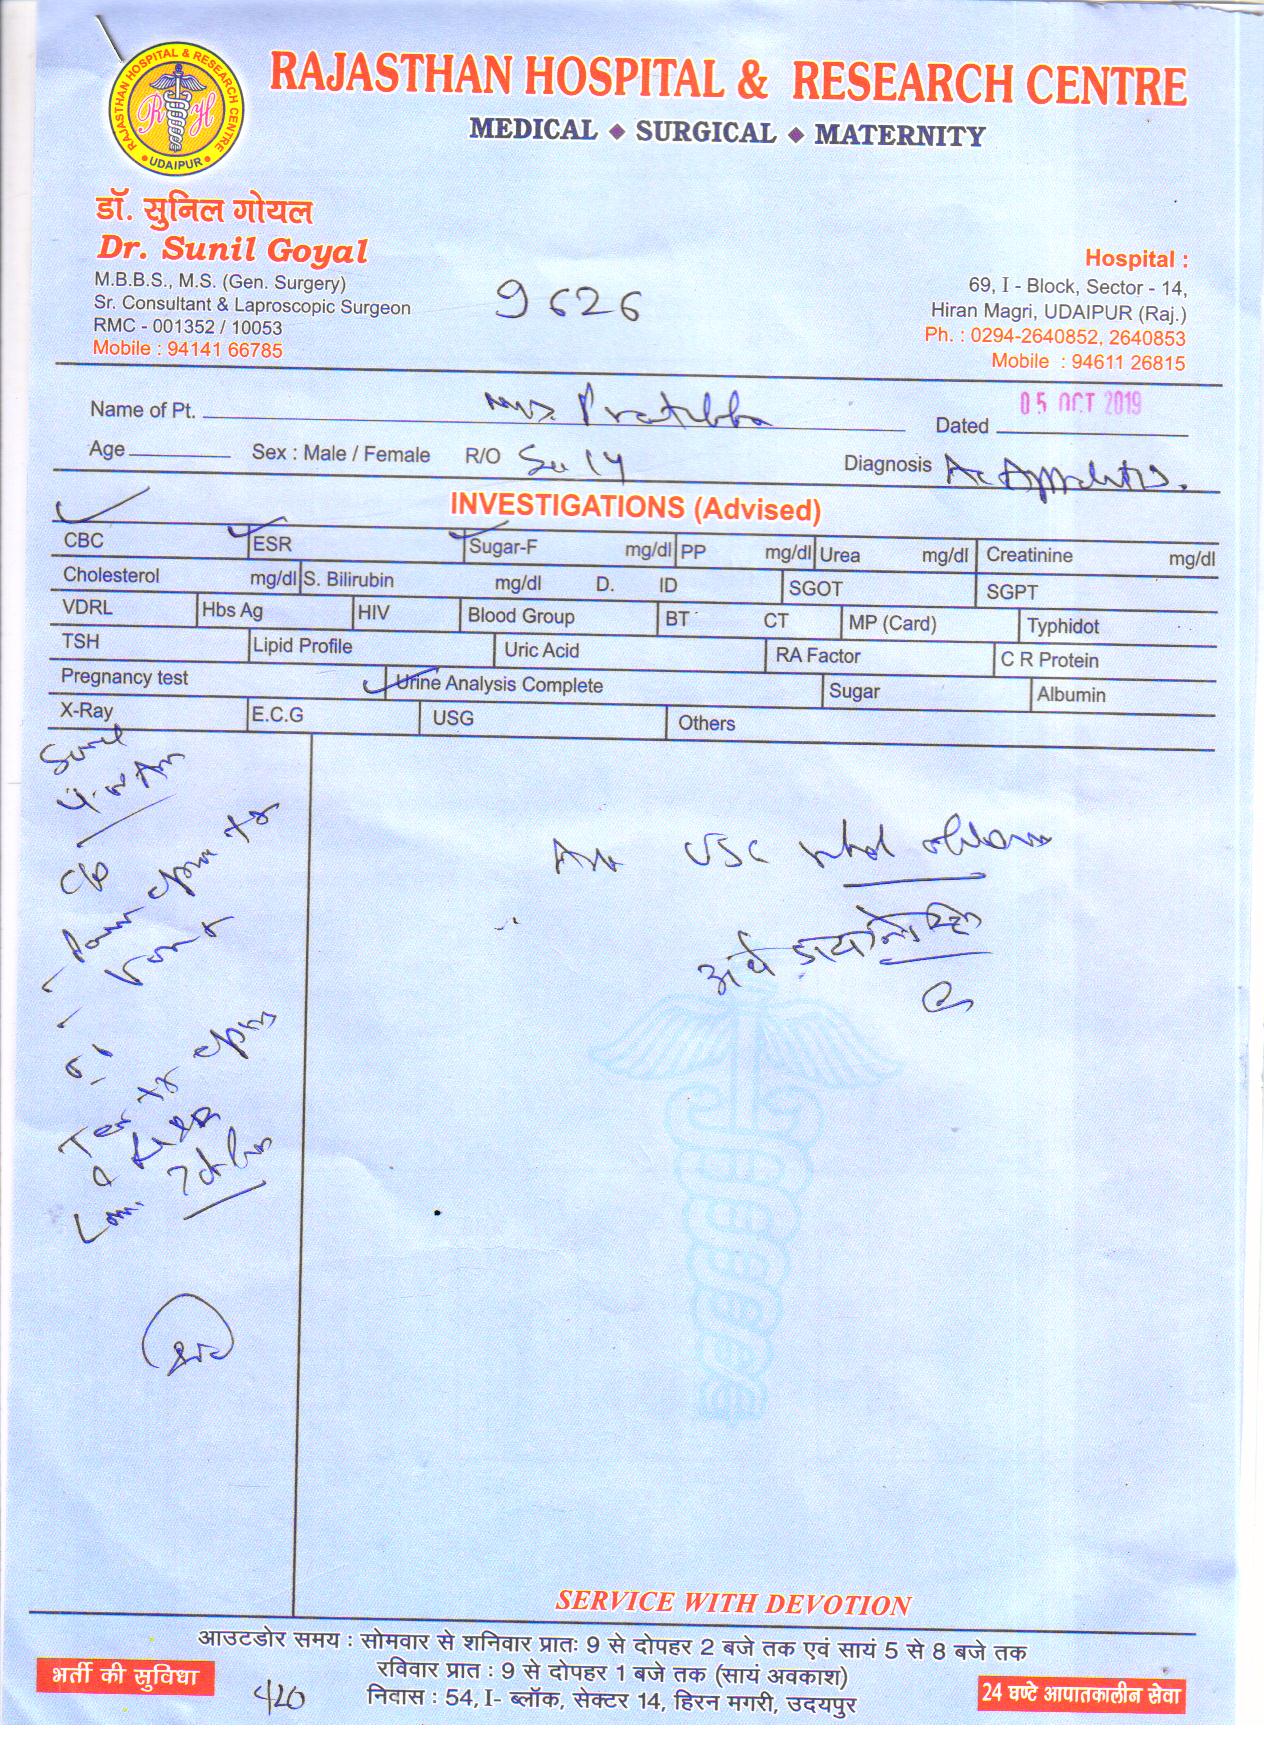 RAJASTHAN HOSPITAL & RESEARCH CENTRE
RAJASTHAN HOSPITAL & RESEARCH CENTRE
• UDAIPUR •
RH
MEDICAL ◆ SURGICAL ◆ MATERNITY
डॉ. सुनिल गोयल
Dr. Sunil Goyal
M.B.B.S., M.S. (Gen. Surgery)
Sr. Consultant & Laproscopic Surgeon
RMC - 001352 / 10053
Mobile : 94141 66785
9626
Hospital :
69, I - Block, Sector - 14,
Hiran Magri, UDAIPUR (Raj.)
Ph. : 0294-2640852, 2640853
Mobile : 94611 26815
Name of Pt. Mrs. Pratibha Dated 05 OCT 2019
Age Sex : Male / Female R/O Sec 14 Diagnosis
INVESTIGATIONS (Advised)
CBC ESR Sugar-F mg/dl PP mg/dl Urea mg/dl Creatinine mg/dl
Cholesterol mg/dl S. Bilirubin mg/dl D. ID SGOT SGPT
VDRL Hbs Ag HIV Blood Group BT CT MP (Card) Typhidot
TSH Lipid Profile Uric Acid RA Factor C R Protein
Pregnancy test Urine Analysis Complete Sugar Albumin
X-Ray E.C.G USG Others
C/O
USG
अर्थ डायग्नोस्टिक
SERVICE WITH DEVOTION
आउटडोर समय : सोमवार से शनिवार प्रातः 9 से दोपहर 2 बजे तक एवं सायं 5 से 8 बजे तक
रविवार प्रात : 9 से दोपहर 1 बजे तक (सायं अवकाश)
निवास : 54, I- ब्लॉक, सेक्टर 14, हिरन मगरी, उदयपुर
भर्ती की सुविधा
420
24 घण्टे आपातकालीन सेवा